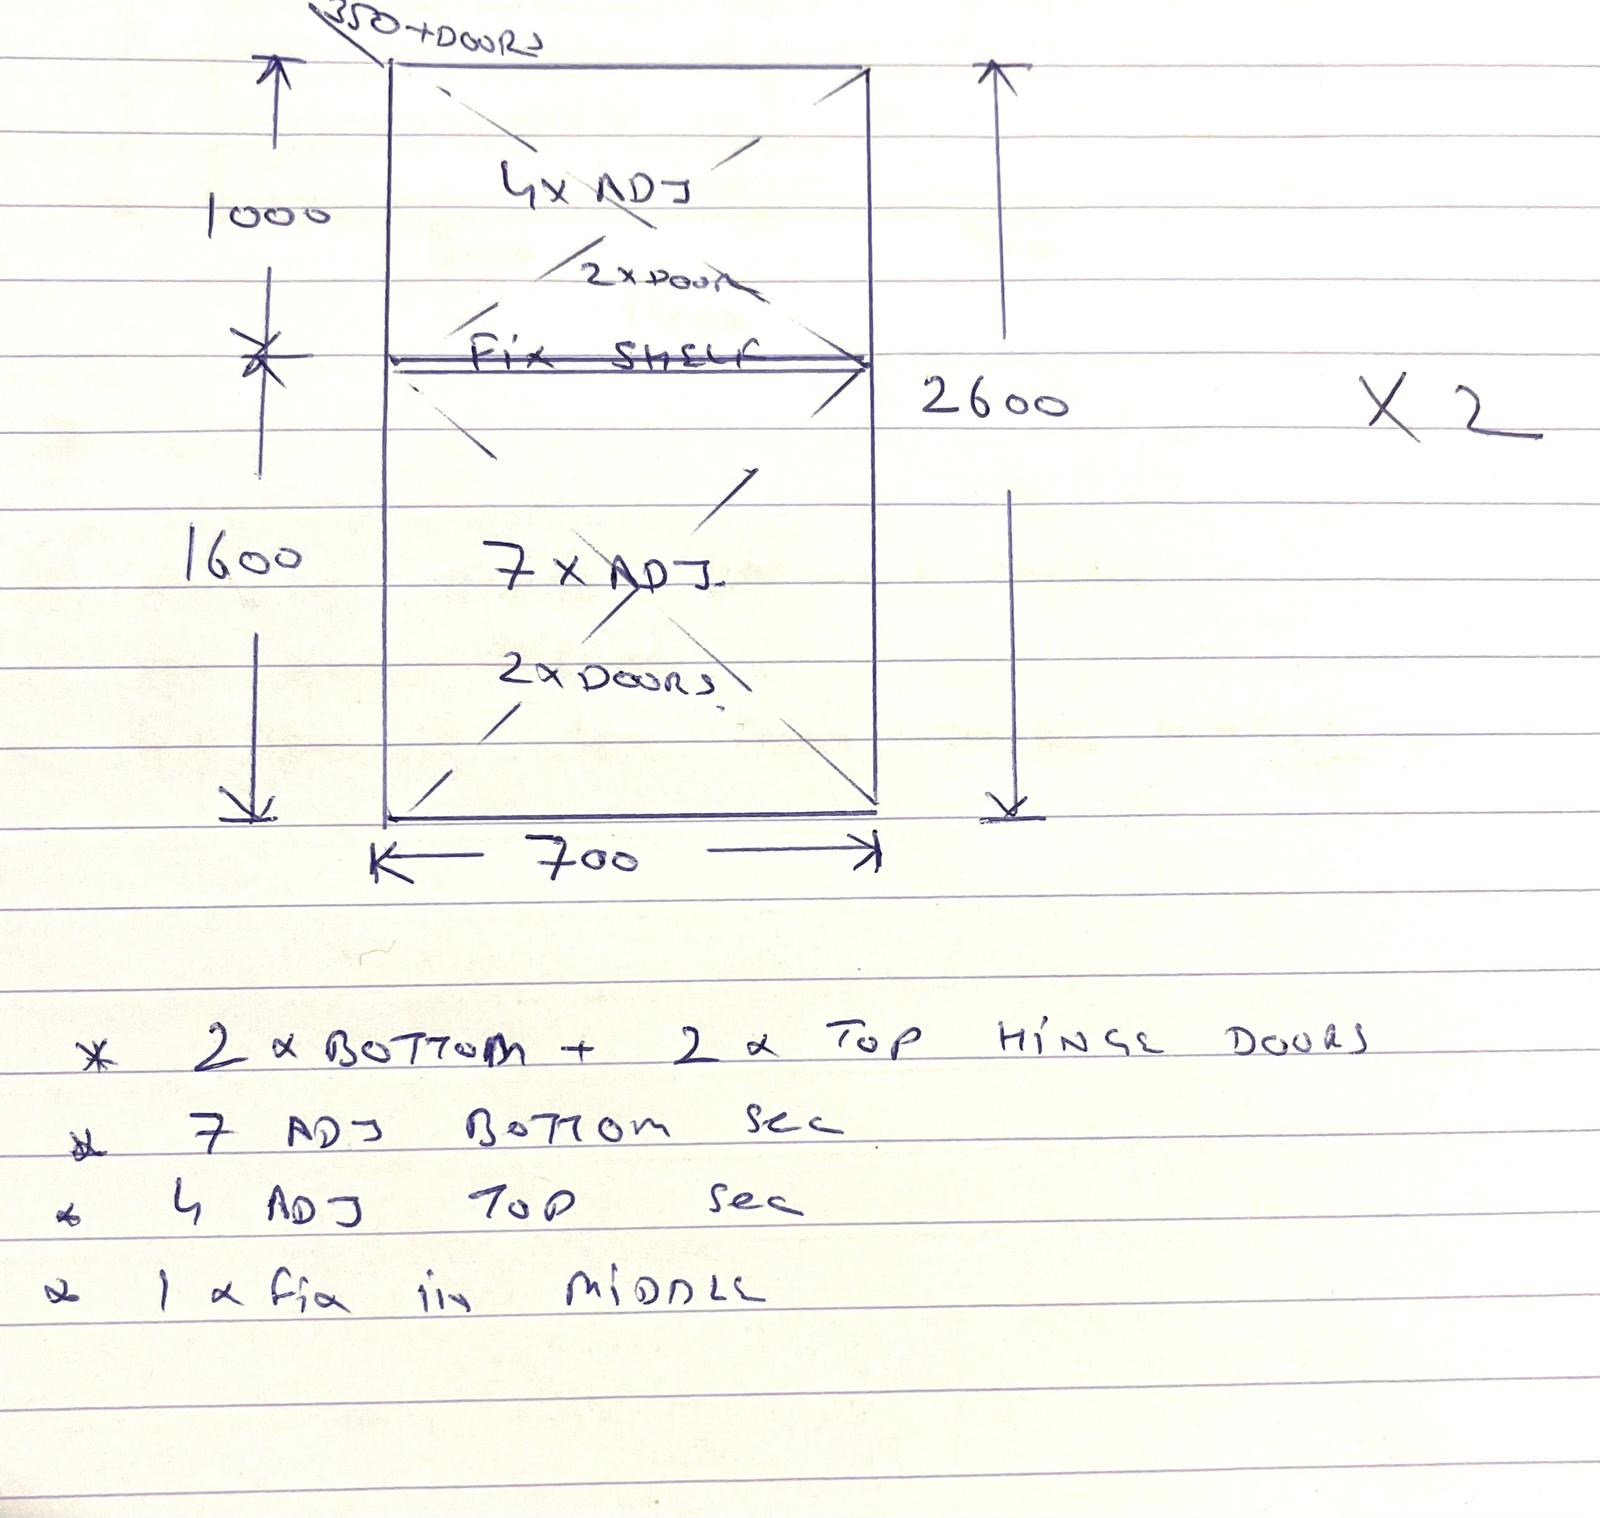 350+DOORS
4x ADJ
1000
2xDOOR
Fix SHELF
2600
X 2
1600
7 x ADJ.
2xDOORS
700
* 2 x BOTTOM + 2 x TOP HINGE DOORS
* 7 ADJ BOTTOM Sec
* 4 ADJ TOP Sec
* 1 x fix in MIDDLE